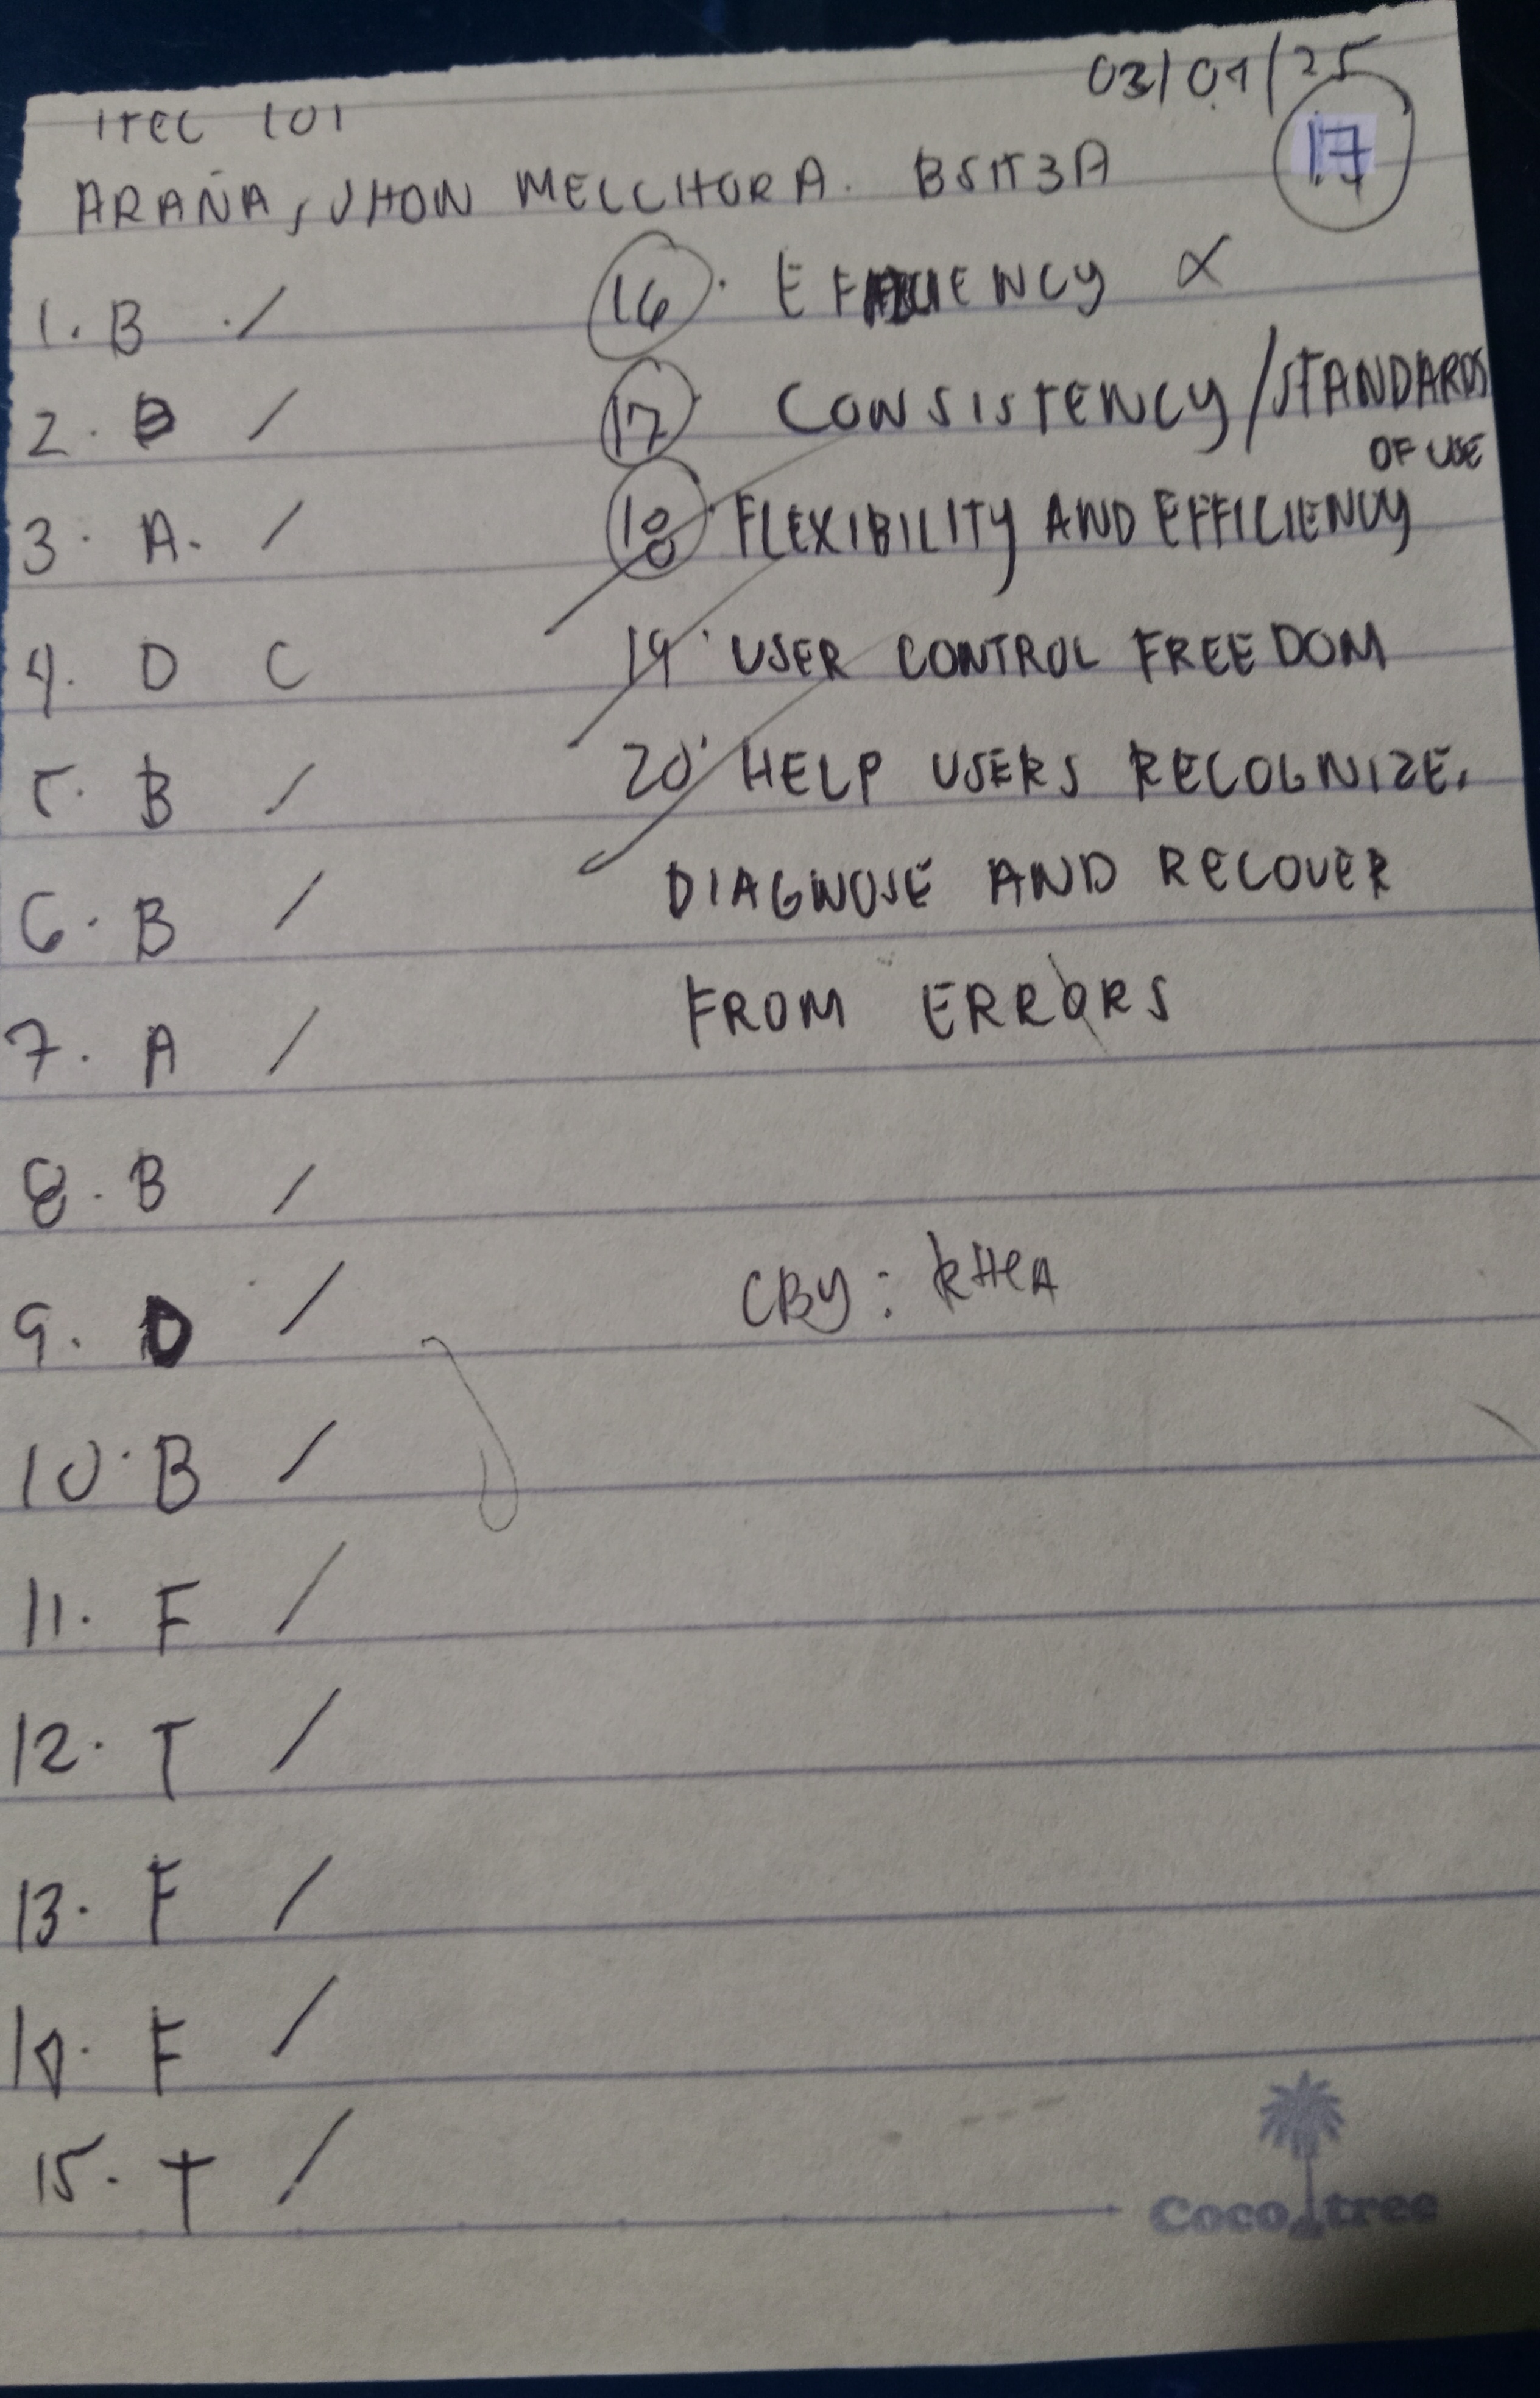 03/04/25
ITEC 101
17
ARAÑA, JHON MELCHOR A. BSIT3A
1. B /
2. B /
3. A. /
4. D C
5. B /
6. B /
7. A /
8. B /
9. D /
10. B /
11. F /
12. T /
13. F /
14. F /
15. T /
16. x
17. CONSISTENCY/STANDARDS
OF USE
18. FLEXIBILITY AND EFFICIENCY
19. USER CONTROL FREEDOM
20. HELP USERS RECOGNIZE,
DIAGNOSE AND RECOVER
FROM ERRORS
CBY: RHEA
Cocotree